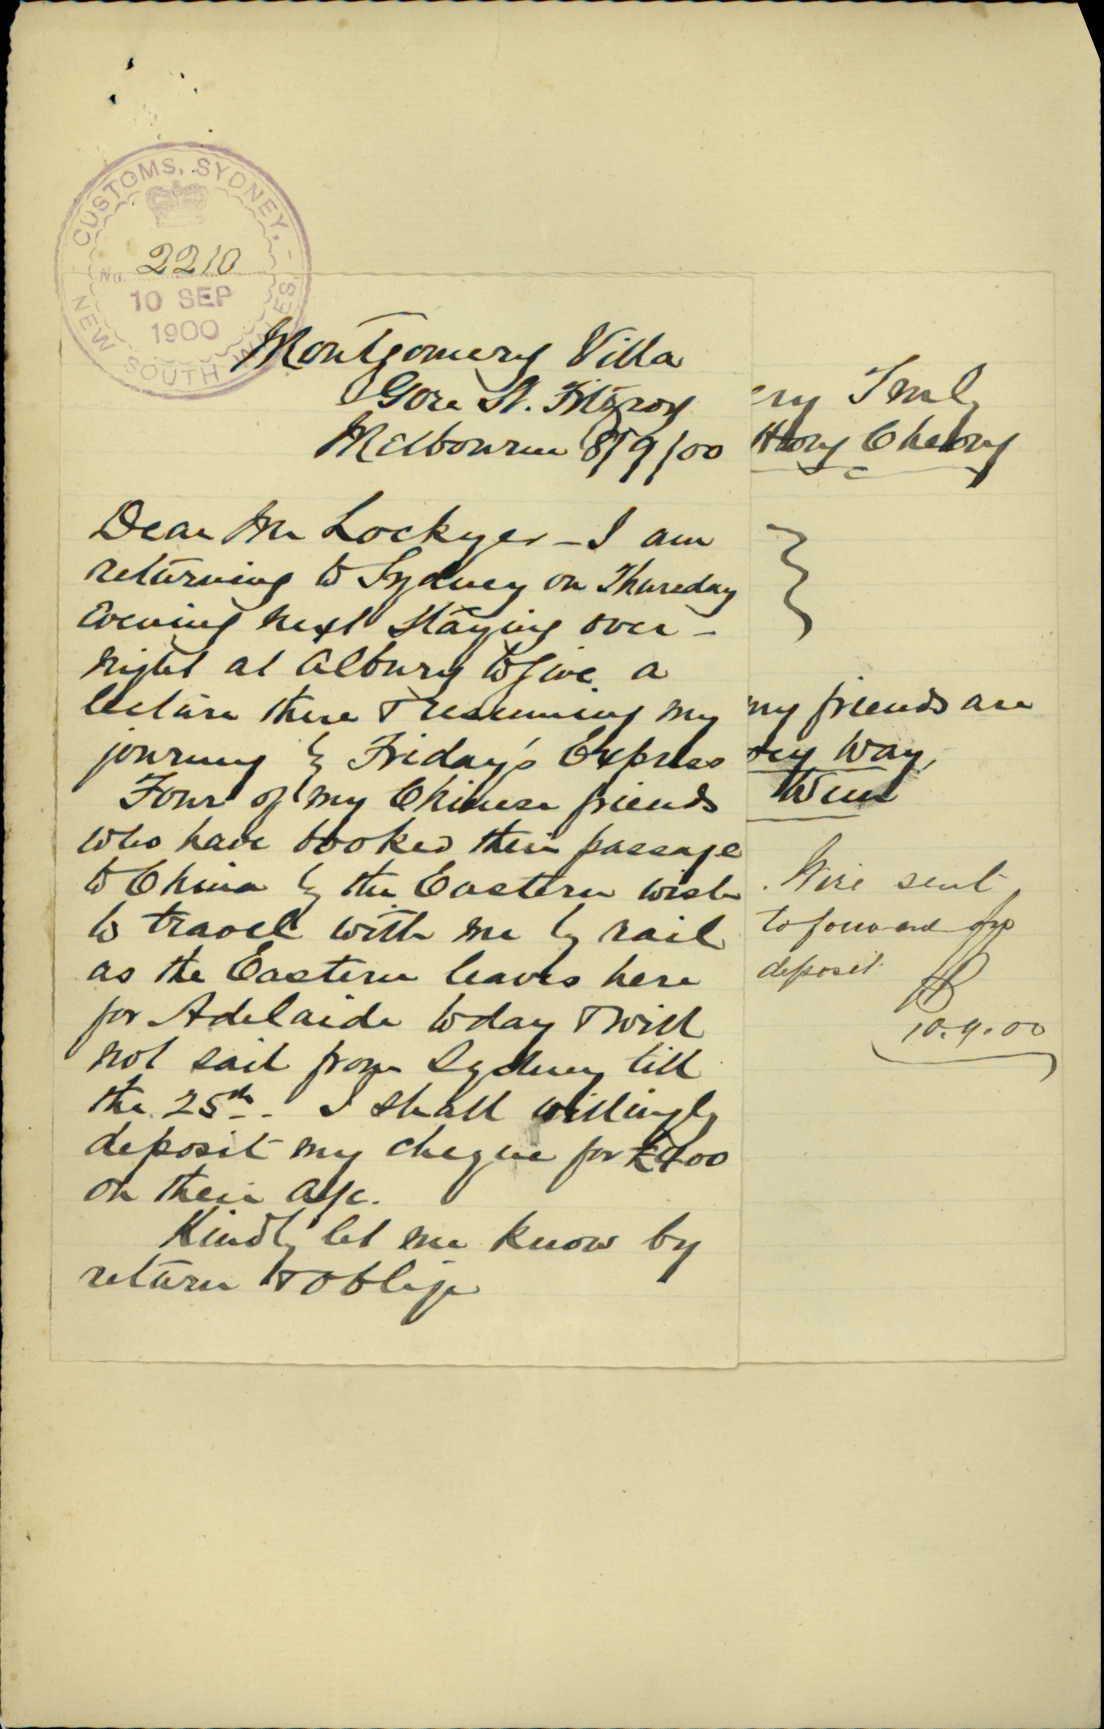 CUSTOMS, SYDNEY,
NEW SOUTH WALES.
No. 2210
10 SEP
1900
Montgomery Villa
Gore St. Fitzroy
Melbourne 8/9/00
Dear Mr Lockyer - I am
returning to Sydney on Thursday
Evening next staying over-
night at Albury to give a
lecture there & resuming my
journey by Friday's Express
Four of my Chinese friends
who have booked their passage
to China by the Eastern wish
to travel with me by rail
as the Eastern leaves here
for Adelaide today & will
not sail from Sydney till
the 25th. I shall willingly
deposit my cheque for £400
on their a/c.
Kindly let me know by
return & oblige
ery Truly
Hong Cheong
my friends are
way,
Wire sent
to forward
deposit.
10.9.00